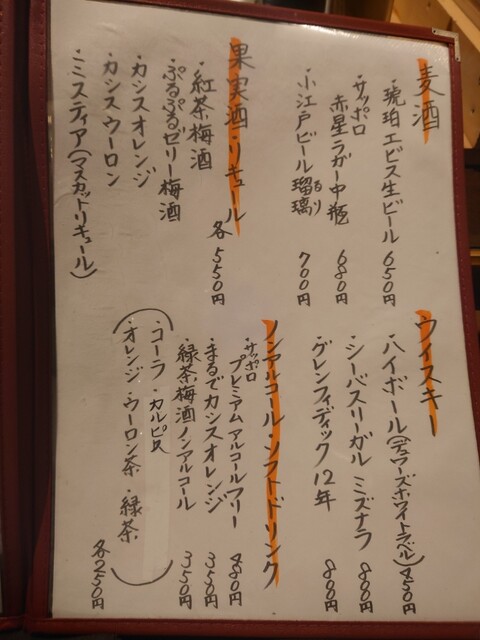 麦酒
・琥珀ヱビス生ビール 650円
・サッポロ
赤星ラガー中瓶 680円
・小江戸ビール瑠璃 700円
るり
果実酒・リキュール 各550円
・紅茶梅酒
・ぷるぷるゼリー梅酒
・カシスオレンジ
・カシスウーロン
・ミスティア(マスカットリキュール)
ウイスキー
・ハイボール(デュワーズホワイトラベル) 450円
・シーバスリーガル ミズナラ 800円
・グレンフィディック12年 800円
ノンアルコール・ソフトドリンク
・サッポロ
プレミアムアルコールフリー 480円
・まるでカシスオレンジ 350円
・緑茶梅酒ノンアルコール 350円
・コーラ・カルピス
・オレンジ・ウーロン茶・緑茶 各250円